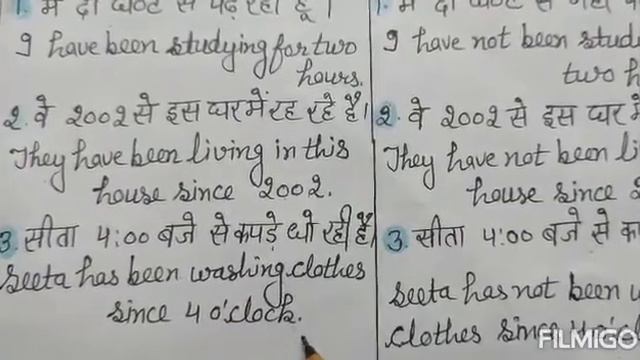 1. मैं दो घण्टे से पढ़ रहा हूँ।
I have been studying for two
hours.
2. वे 2002 से इस घर में रह रहे हैं।
They have been living in this
house since 2002.
3. सीता 4:00 बजे से कपड़े धो रही है
Seeta has been washing clothes
since 4 o'clock.
1. मैं दो घण्टे से नहीं
I have not been
two
2. वे 2002 से इस घर
They have not been
house since
3. सीता 4:00 बजे से
Seeta has not been
clothes since 4
FILMIGO